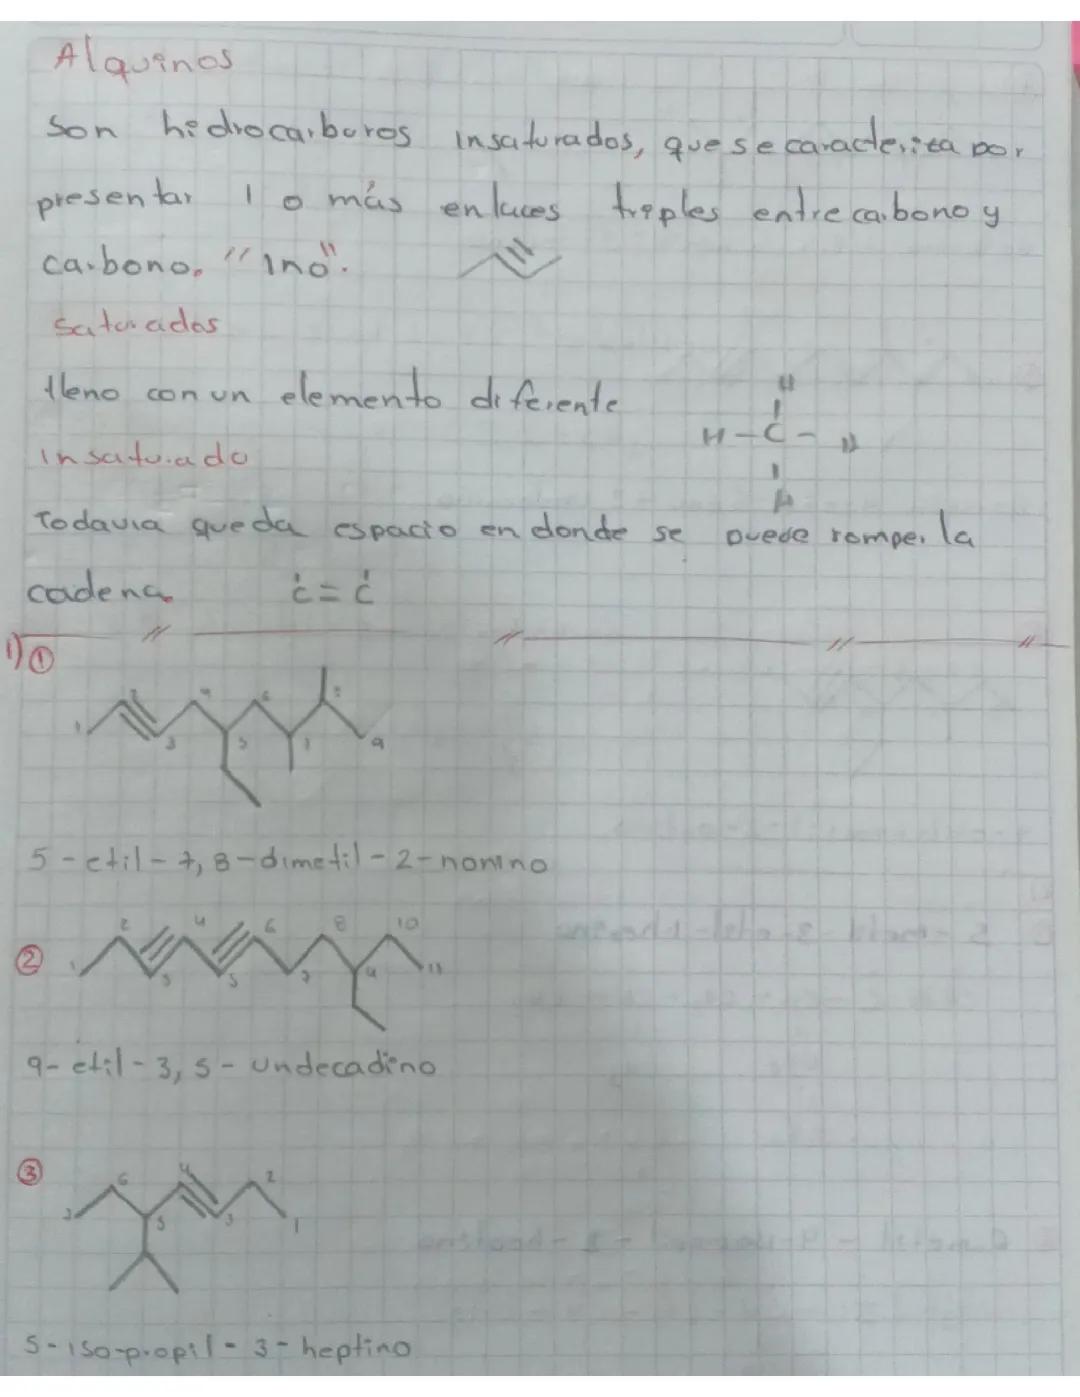 Alquinos
son hidrocarburos insaturados, que se caracteriza por
presentar 1 o más enlaces triples entre carbono y
carbono. "Ino".
Saturados
lleno con un elemento diferente
H
H-C-H
H
Insaturado
Todavia queda espacio en donde se puede romper la
cadena. c=c
1) ①
1 2 3 4 5 6 7 8 9
5-etil-7,8-dimetil-2-nonino
② 1 2 3 4 5 6 7 8 9 10 11
9-etil-3,5-undecadino
③
7 6 5 4 3 2 1
5-iso-propil-3-heptino